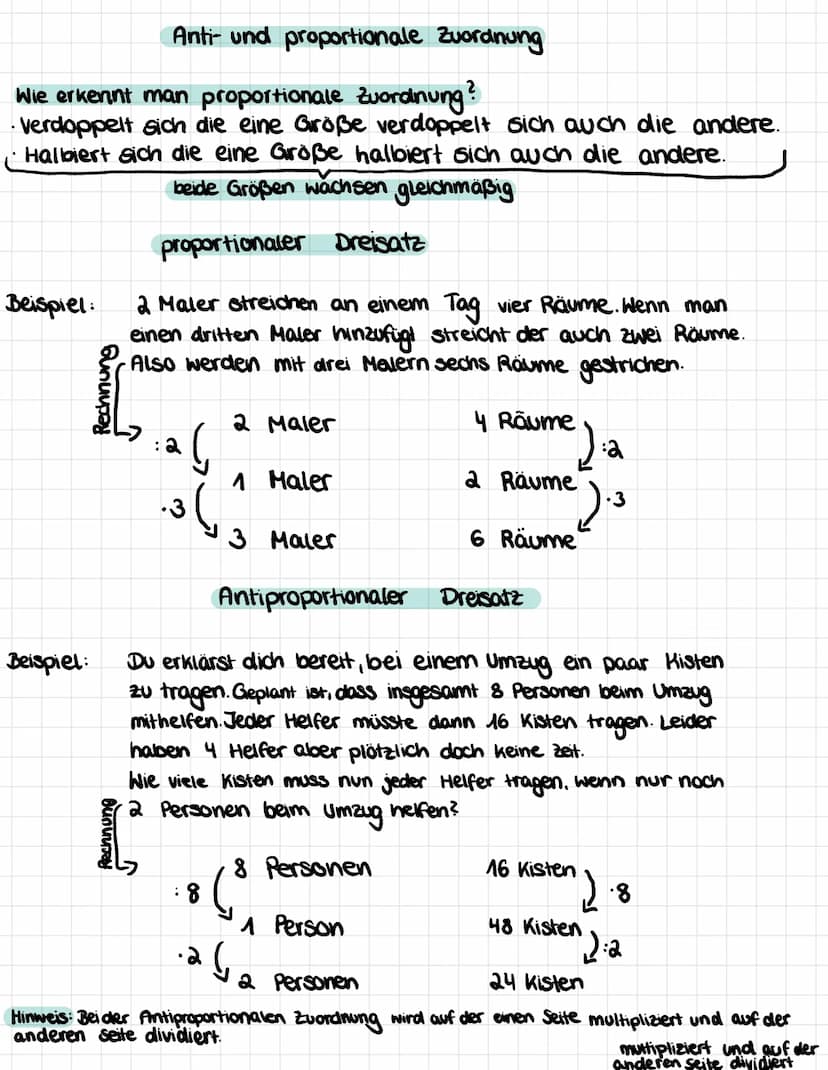 Anti- und proportionale Zuordnung
Wie erkennt man proportionale Zuordnung?
· Verdoppelt sich die eine Größe verdoppelt sich auch die andere.
· Halbiert sich die eine Größe halbiert sich auch die andere.
beide Größen wachsen gleichmäßig
proportionaler Dreisatz
Beispiel: 2 Maler streichen an einem Tag vier Räume. Wenn man
einen dritten Maler hinzufügt streicht der auch zwei Räume.
Also werden mit drei Malern sechs Räume gestrichen.
Rechnung
2 Maler 4 Räume
:2 :2
1 Maler 2 Räume
·3 ·3
3 Maler 6 Räume
Antiproportionaler Dreisatz
Beispiel: Du erklärst dich bereit, bei einem Umzug ein paar Kisten
zu tragen. Geplant ist, dass insgesamt 8 Personen beim Umzug
mithelfen. Jeder Helfer müsste dann 16 Kisten tragen. Leider
haben 4 Helfer aber plötzlich doch keine Zeit.
Wie viele Kisten muss nun jeder Helfer tragen, wenn nur noch
2 Personen beim Umzug helfen?
Rechnung
8 Personen 16 Kisten
:8 ·8
1 Person 48 Kisten
·2 :2
2 Personen 24 Kisten
Hinweis: Bei der Antiproportionalen Zuordnung wird auf der einen Seite multipliziert und auf der
anderen Seite dividiert.
multipliziert und auf der
anderen Seite dividiert